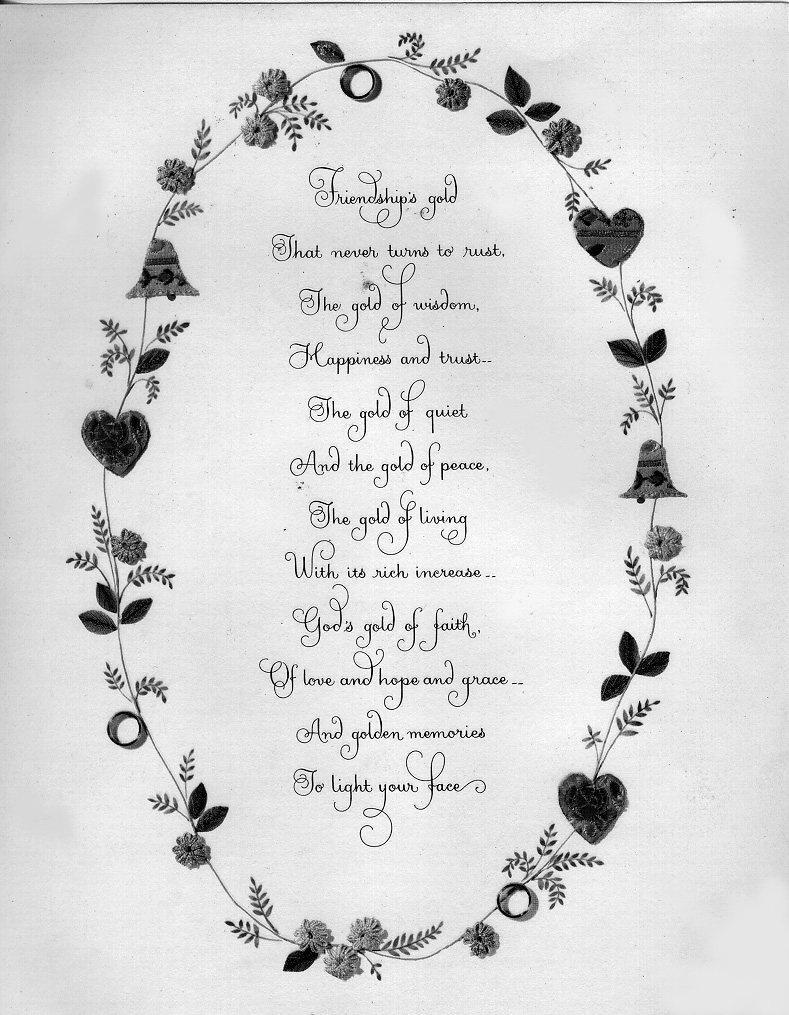 Friendship's gold
That never turns to rust,
The gold of wisdom,
Happiness and trust--
The gold of quiet
And the gold of peace,
The gold of living
With its rich increase--
God's gold of faith,
Of love and hope and grace--
And golden memories
To light your face